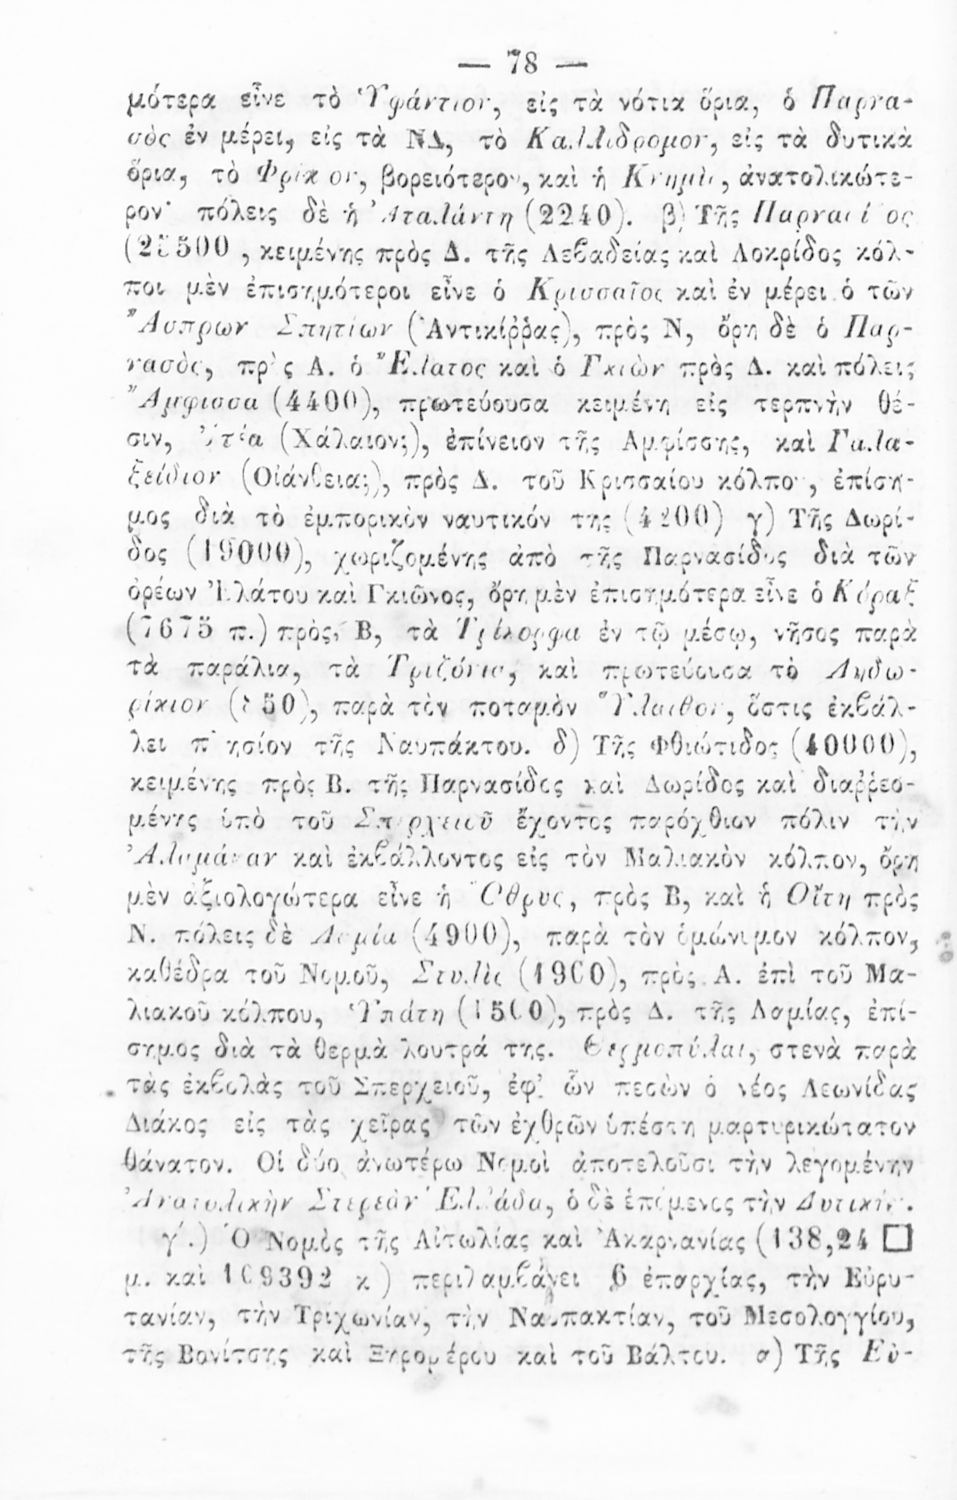 — 78 —
μότερα εἶνε τὸ Ὑφάντιον, εἰς τὰ νότια ὅρια, ὁ Παρνα-
σὸς ἐν μέρει, εἰς τὰ ΝΔ, τὸ Καλλίδρομον, εἰς τὰ δυτικὰ
ὅρια, τὸ Φρίκιον, βορειότερον, καὶ ἡ Κνημὶς, ἀνατολικώτε-
ρον· πόλεις δὲ ἡ Ἀταλάντη (2240). β) Τῆς Παρνασίδος
500, κειμένης πρὸς Δ. τῆς Λεβαδείας καὶ Λοκρίδος κόλ-
ποι μὲν ἐπισημότεροι εἶνε ὁ Κρισσαῖος καὶ ἐν μέρει ὁ τῶν
Ἄσπρων Σπητίων (Ἀντικίῤῥας), πρὸς Ν, ὄρη δὲ ὁ Παρ-
νασὸς, πρὸς Α. ὁ Ἔλατος καὶ ὁ Γκιὼν πρὸς Δ. καὶ πόλεις
Ἄμφισσα (4400), πρωτεύουσα κειμένη εἰς τερπνὴν θέ-
σιν, Ἰτέα (Χάλαιον;), ἐπίνειον τῆς Ἀμφίσσης, καὶ Γαλα-
ξείδιον (Οἰάνθεια;), πρὸς Δ. τοῦ Κρισσαίου κόλπου, ἐπίση-
μος διὰ τὸ ἐμπορικὸν ναυτικόν της (4200) γ) Τῆς Δωρί-
δος (19000), χωριζομένης ἀπὸ τῆς Παρνασίδος διὰ τῶν
ὀρέων Ἐλάτου καὶ Γκιῶνος, ὄρη μὲν ἐπισημότερα εἶνε ὁ Κόραξ
(7675 π.) πρὸς Β, τὰ Τρίκορφα ἐν τῷ μέσῳ, νῆσος παρὰ
τὰ παράλια, τὰ Τριζόνια, καὶ πρωτεύουσα τὸ Λιδω-
ρίκιον (50), παρὰ τὸν ποταμὸν Ὕλαιθον, ὅστις ἐκβάλ-
λει πλησίον τῆς Ναυπάκτου. δ) Τῆς Φθιώτιδος (40000),
κειμένης πρὸς Β. τῆς Παρνασίδος καὶ Δωρίδος καὶ διαῤῥεο-
μένης ὑπὸ τοῦ Σπερχειοῦ ἔχοντος παρόχθιον πόλιν τὴν
Ἀλαμάναν καὶ ἐκβάλλοντος εἰς τὸν Μαλιακὸν κόλπον, ὄρη
μὲν ἀξιολογώτερα εἶνε ἡ Ὄθρυς, πρὸς Β, καὶ ἡ Οἴτη πρὸς
Ν. πόλεις δὲ Λαμία (4900), παρὰ τὸν ὁμώνυμον κόλπον,
καθέδρα τοῦ Νομοῦ, Στυλὶς (1900), πρὸς Α. ἐπὶ τοῦ Μα-
λιακοῦ κόλπου, Ὑπάτη (1500), πρὸς Δ. τῆς Λαμίας, ἐπί-
σημος διὰ τὰ θερμὰ λουτρά της. Θερμοπύλαι, στενὰ παρὰ
τὰς ἐκβολὰς τοῦ Σπερχειοῦ, ἐφ' ὧν πεσὼν ὁ νέος Λεωνίδας
Διάκος εἰς τὰς χεῖρας τῶν ἐχθρῶν ὑπέστη μαρτυρικώτατον
θάνατον. Οἱ δύο ἀνωτέρω Νομοὶ ἀποτελοῦσι τὴν λεγομένην
Ἀνατολικὴν Στερεὰν Ἑλλάδα, ὁ δὲ ἑπόμενος τὴν Δυτικήν.
γ΄.) Ὁ Νομὸς τῆς Αἰτωλίας καὶ Ἀκαρνανίας (138,24 □
μ. καὶ 109392 κ) περιλαμβάνει 6 ἐπαρχίας, τὴν Εὐρυ-
τανίαν, τὴν Τριχωνίαν, τὴν Ναυπακτίαν, τοῦ Μεσολογγίου,
τῆς Βονίτσης καὶ Ξηρομέρου καὶ τοῦ Βάλτου. α) Τῆς Εὐ-